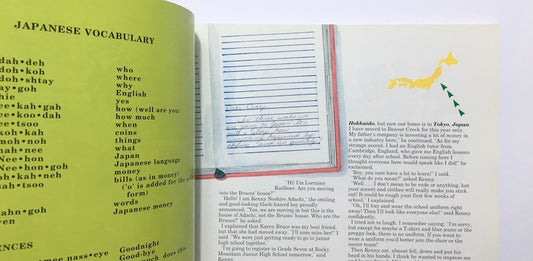 JAPANESE VOCABULARY
dah•deh
doh•koh who
doh•shtay where
ay•goh why
hie English
ee•kah•gah yes
ee•koo•dah how (well are you)
ee•tsoo how much
oh•kah when
moh•noh coins
nah•nee things
Nee•hon what
Nee•hon•goh Japan
oh•kah•neh Japanese language
sah•tsoo money
bills (as in money)
('o' is added for the polite
form)
words
Japanese money
Goodnight
Good-bye
"Hi! I'm Lorraine
Kuilboer. Are you moving
into the Bruces' house?"
"Hello! I am Kenny Noshiro Adachi," the smiling
and good-looking black haired boy proudly
announced. "Yes, we are moving in but this is the
house of Adachi, not the Bruces' house. Who are the
Bruces?" he asked.
I explained that Karen Bruce was my best friend,
but that she had moved away. "I'll sure miss her!" I
said. "We were just getting ready to go to junior
high school together."
"I'm going to register in Grade Seven at Rocky
Mountain Junior High School tomorrow," said
Kenny.
Hokkaido, but now our home is in Tokyo, Japan.
I have moved to Beaver Creek for this year only.
My father's company is investing a lot of money in
a new industry here," he continued. "As for my
strange accent, I had an English tutor from
Cambridge, England, who gave me English lessons
every day after school. Before coming here I
thought everyone here would speak like I did!" he
exclaimed.
"Boy, you sure have a lot to learn!" I said.
"What do you mean?" asked Kenny.
"Well . . . I don't mean to be rude or anything, but
your accent and clothes will really make you stick
out! It could be rough your first few weeks of
school", I explained.
"Oh, I'll buy and wear the school uniform right
away! Then I'll look like everyone else!" said Kenny
confidently.
I tried not to laugh. I remember saying: "I'm sorry,
but except for maybe a T-shirt and blue jeans or the
preppy look, there is no uniform. If you want to
wear a uniform you'd better join the choir or the
soccer team!"
Then Kenny sat, almost fell, down and put his
head in his hands. I think he wanted to impress me